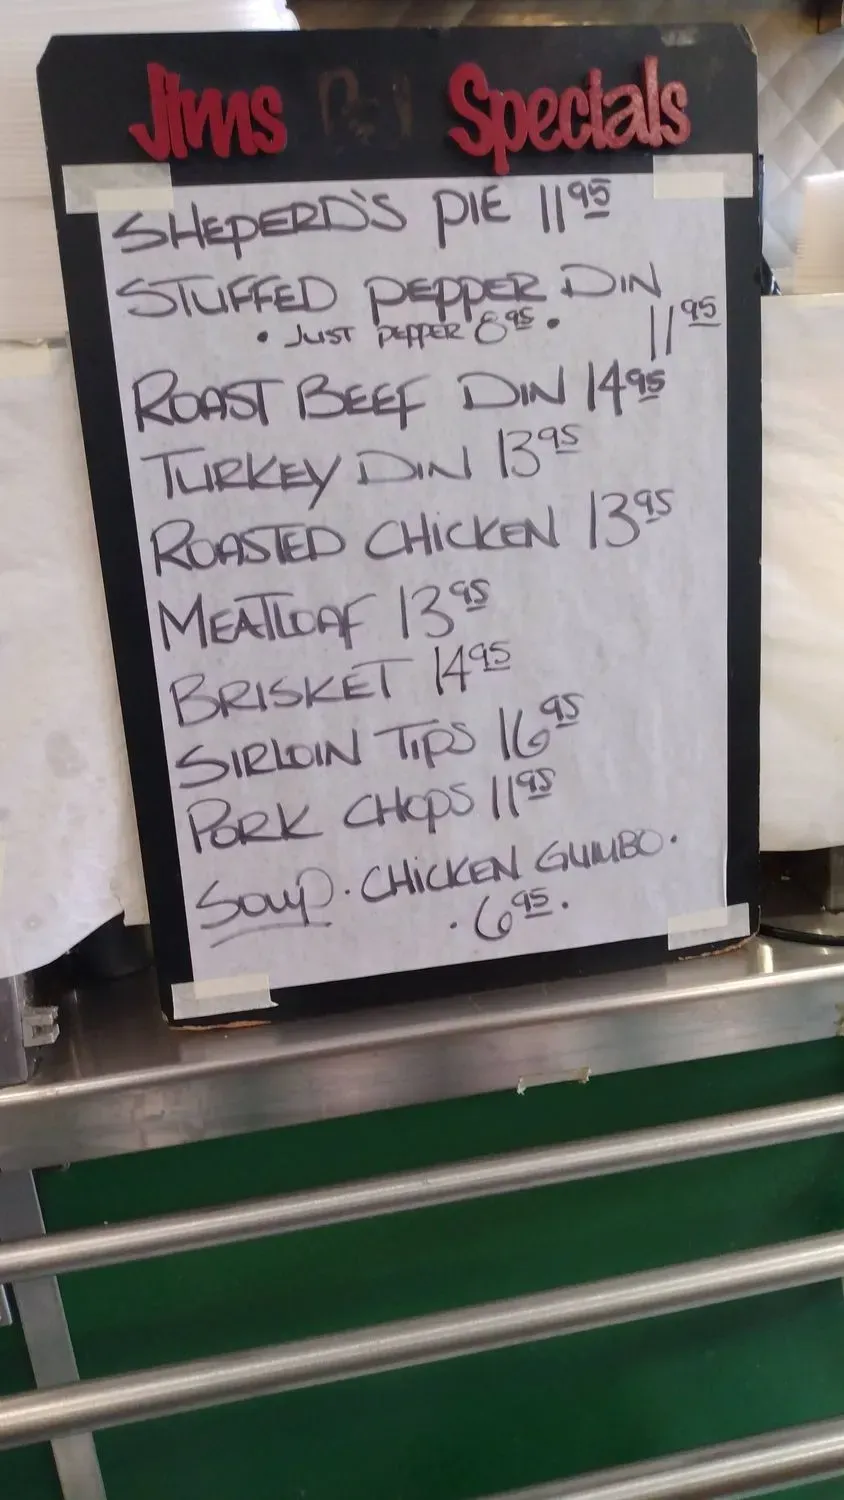 Jims Specials
SHEPERD'S PIE 11 95
STUFFED PEPPER DIN
11 95
• JUST PEPPER 8 95 •
ROAST BEEF DIN 14 95
TURKEY DIN 13 95
ROASTED CHICKEN 13 95
MEATLOAF 13 95
BRISKET 14 95
SIRLOIN TIPS 16 95
PORK CHOPS 11 95
SOUP • CHICKEN GUMBO •
• 6 95 •